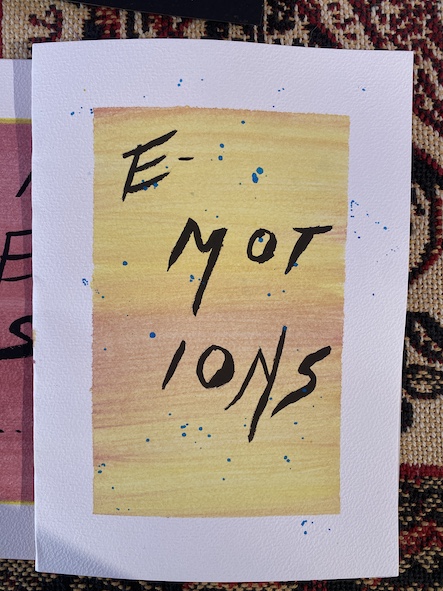 E-
MOT
IONS